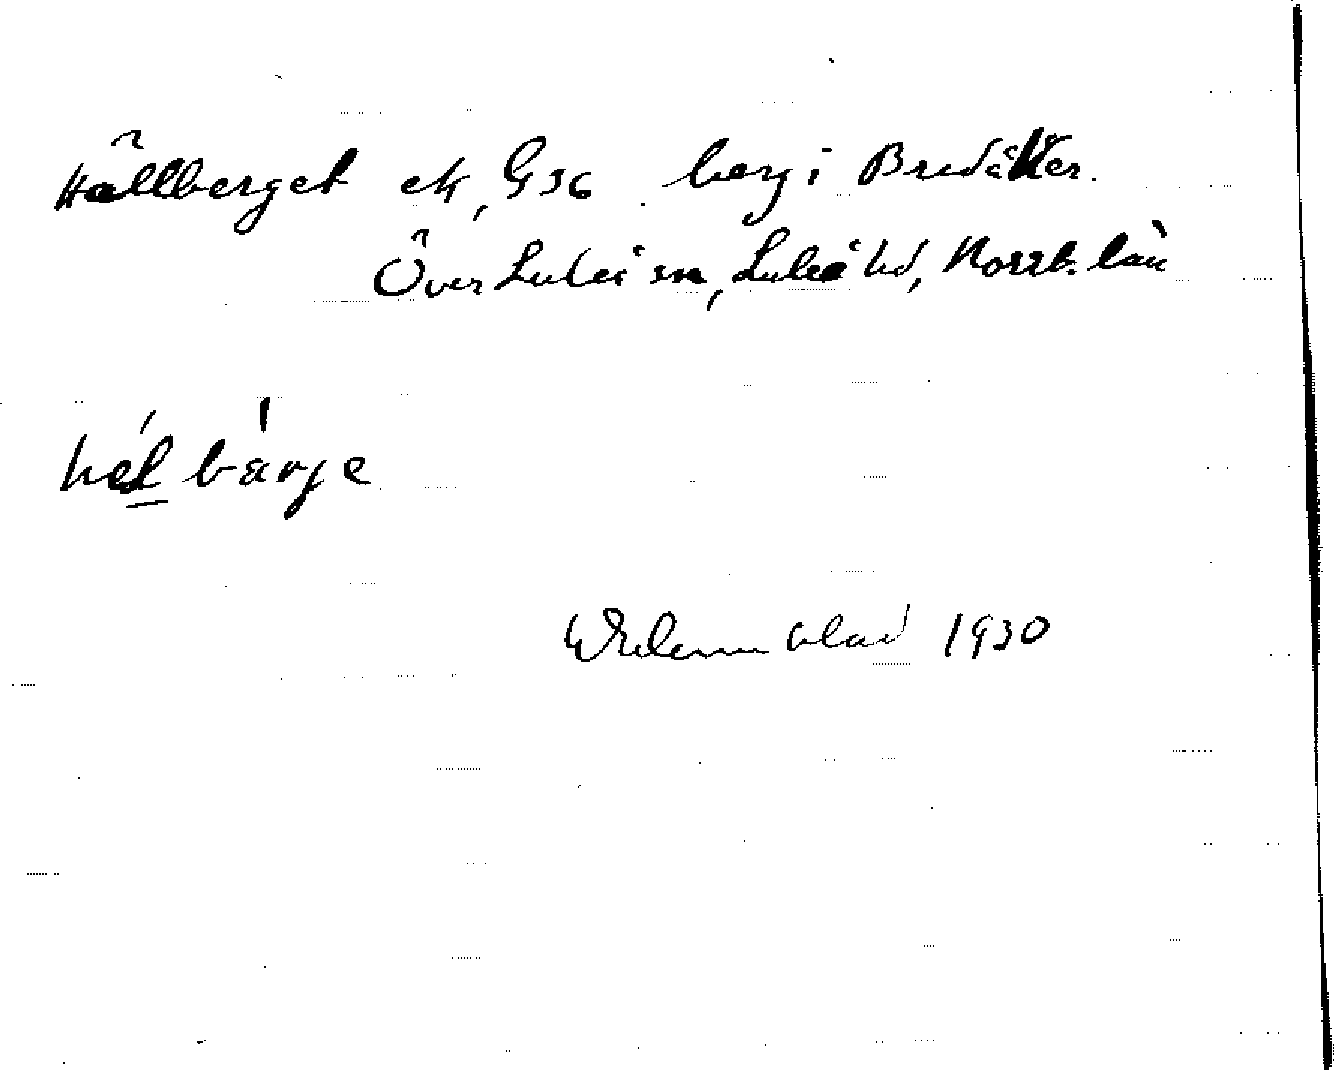 Hällberget ek, G36 berg i Bredåker.
Över Luleå sn, Luleå hd, Norrb. län
hél bárje
1930